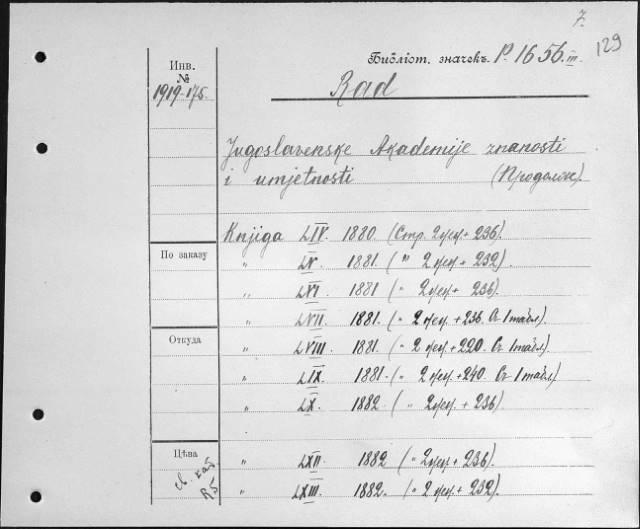 7.
129
Библіот. значекъ P. 1656 III
Инв. №
1919-175.
Rad
Jugoslavenske Akademije znanosti
i umjetnosti (Продолж).
Knjiga LIV. 1880. (Стр. 2 нен + 236).
По заказу
" LV. 1881. (" 2 нен + 232).
" LVI 1881 (" 2 нен + 236).
" LVII. 1881. (" 2 нен. + 236. Съ 1 табл).
Откуда
" LVIII. 1881. (" 2 нен. + 220. Съ 1 табл).
" LIX. 1881. (" 2 нен + 240. Съ 1 табл.)
" LX. 1882 (" 2 нен. + 236)
Цѣна
" LXII 1882 (" 2 нен. + 236).
" LXIII. 1882. (" 2 нен + 232).